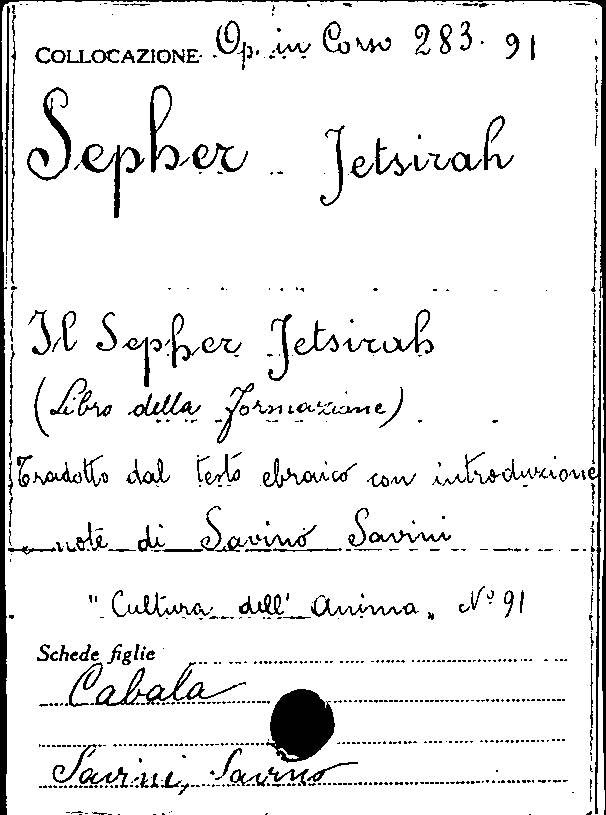 COLLOCAZIONE Op. in Corso 283. 91
Sepher Jetsirah
Il Sepher Jetsirah
(Libro della Formazione)
Tradotto dal testo ebraico con introduzione
e note di Savino Savini
"Cultura dell' Anima„ Nº 91
Schede figlie
Cabala
Savini, Savino